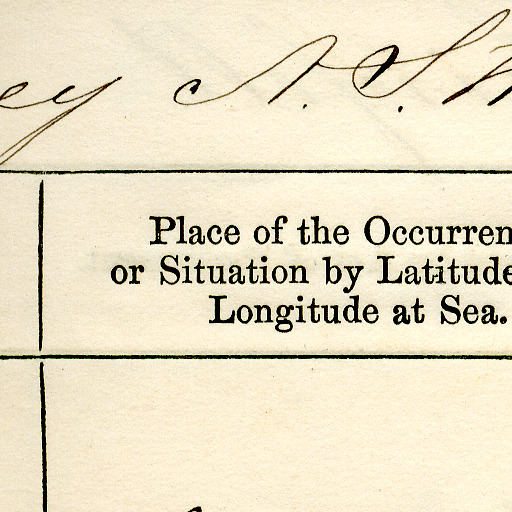 ey N. S. W
Place of the Occurren
or Situation by Latitude
Longitude at Sea.